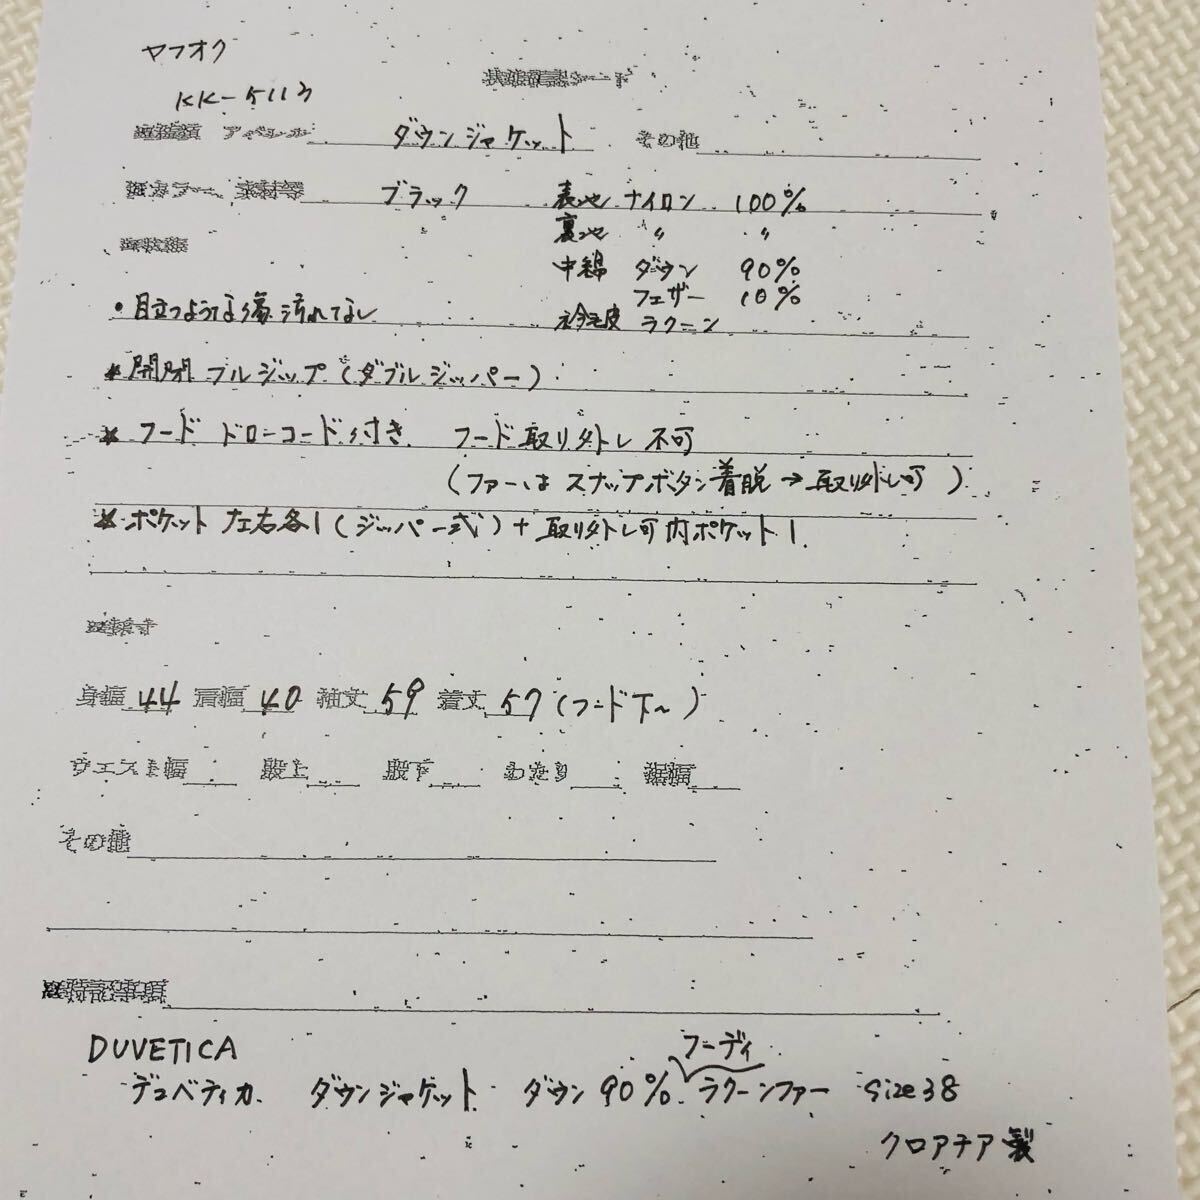 ヤフオク
状態確認シート
KK-5113
アパレル ダウンジャケット その他
カラー 素材等 ブラック 表地 ナイロン 100%
裏地 〃 〃
中綿 ダウン 90%
フェザー 10%
・目立つような傷、汚れてなし 衿毛皮 ラクーン
* 開閉 フルジップ(ダブルジッパー)
* フード ドローコード付き フード取り外し不可
(ファーは スナップボタン着脱→取り外し可)
* ポケット 左右各1(ジッパー式)+取り外し可内ポケット1
身幅 44 肩幅 40 袖丈 59 着丈 57(フード下~)
ウエスト幅 股上 股下 わたり 裾幅
その他
特記事項
DUVETICA フーディ
デュベティカ ダウンジャケット ダウン90% ラクーンファー size38
クロアチア製